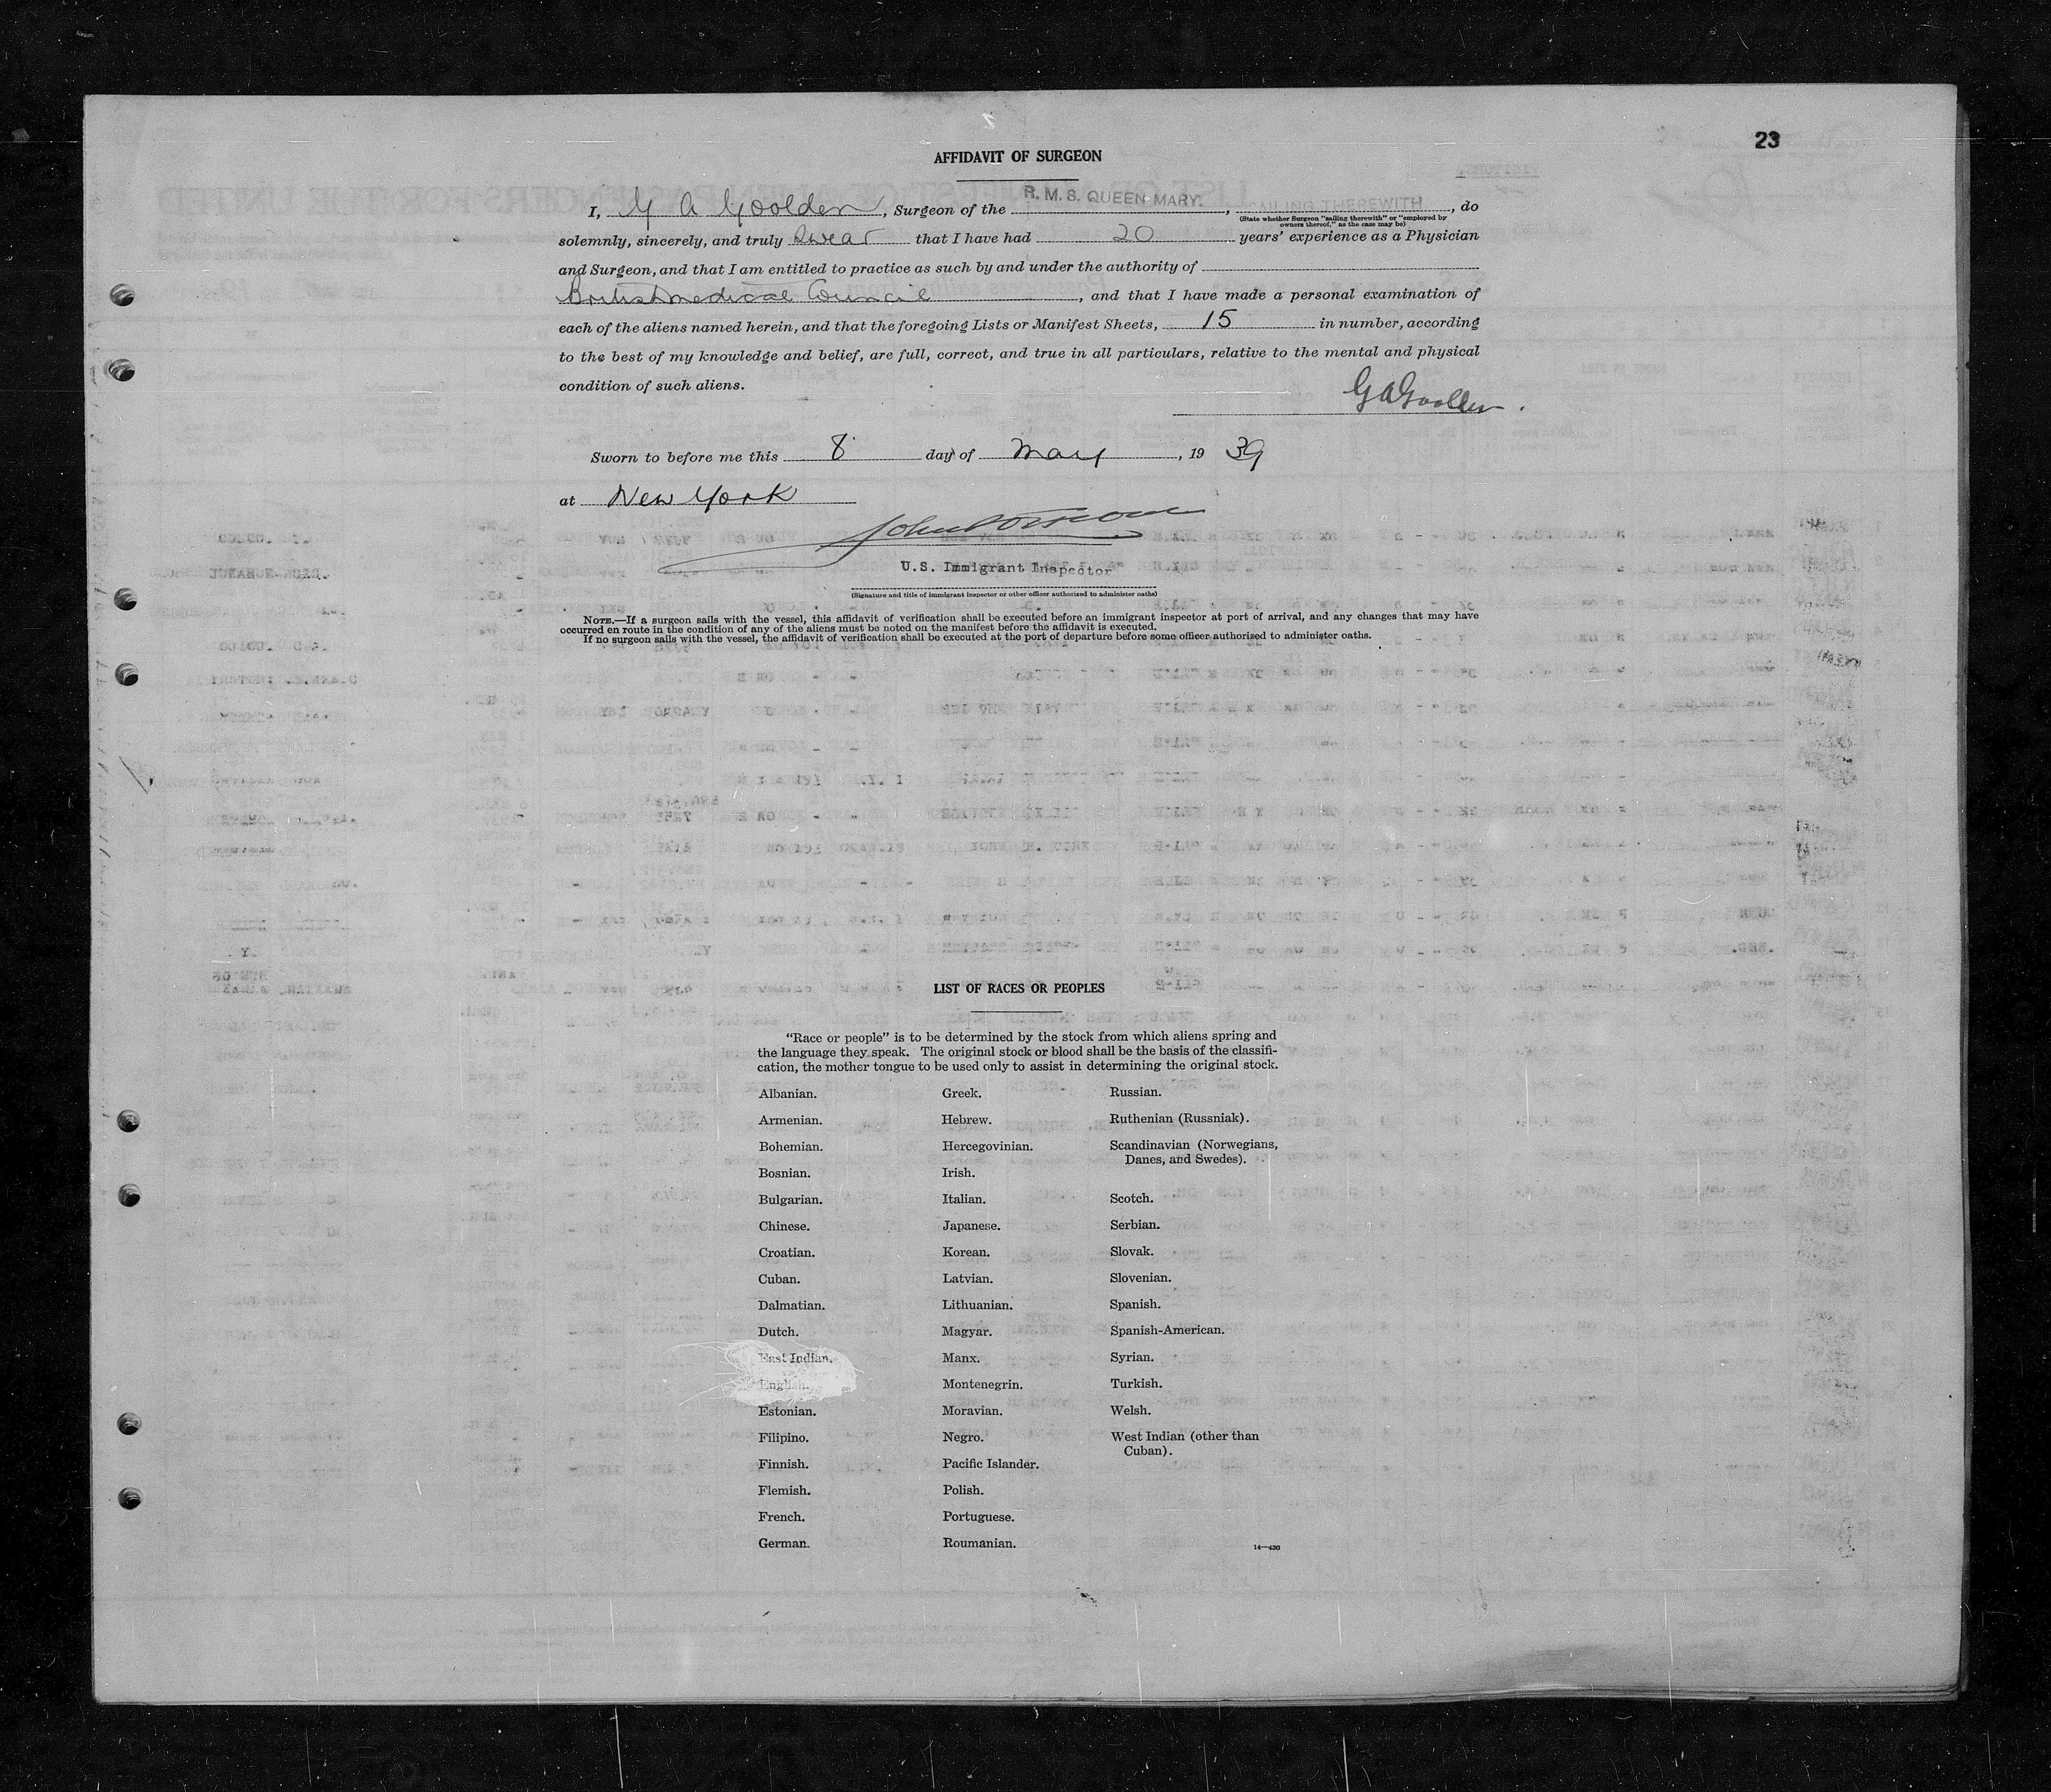 23
AFFIDAVIT OF SURGEON
I, G A Goolden, Surgeon of the R. M. S. QUEEN MARY., SAILING THEREWITH, do
(State whether Surgeon "sailing therewith" or "employed by
owners thereof," as the case may be)
solemnly, sincerely, and truly swear that I have had 20 years' experience as a Physician
and Surgeon, and that I am entitled to practice as such by and under the authority of
British medical Council, and that I have made a personal examination of
each of the aliens named herein, and that the foregoing Lists or Manifest Sheets, 15 in number, according
to the best of my knowledge and belief, are full, correct, and true in all particulars, relative to the mental and physical
condition of such aliens.
G A Goolden.
Sworn to before me this 8 day of May, 19 39
at New York
U.S. Immigrant Inspector
(Signature and title of immigrant inspector or other officer authorized to administer oaths)
NOTE.—If a surgeon sails with the vessel, this affidavit of verification shall be executed before an immigrant inspector at port of arrival, and any changes that may have
occurred en route in the condition of any of the aliens must be noted on the manifest before the affidavit is executed.
If no surgeon sails with the vessel, the affidavit of verification shall be executed at the port of departure before some officer authorized to administer oaths.
LIST OF RACES OR PEOPLES
"Race or people" is to be determined by the stock from which aliens spring and
the language they speak. The original stock or blood shall be the basis of the classifi-
cation, the mother tongue to be used only to assist in determining the original stock.
Albanian.
Armenian.
Bohemian.
Bosnian.
Bulgarian.
Chinese.
Croatian.
Cuban.
Dalmatian.
Dutch.
East Indian.
English.
Estonian.
Filipino.
Finnish.
Flemish.
French.
German.
Greek.
Hebrew.
Hercegovinian.
Irish.
Italian.
Japanese.
Korean.
Latvian.
Lithuanian.
Magyar.
Manx.
Montenegrin.
Moravian.
Negro.
Pacific Islander.
Polish.
Portuguese.
Roumanian.
Russian.
Ruthenian (Russniak).
Scandinavian (Norwegians,
Danes, and Swedes).
Scotch.
Serbian.
Slovak.
Slovenian.
Spanish.
Spanish-American.
Syrian.
Turkish.
Welsh.
West Indian (other than
Cuban).
14—430